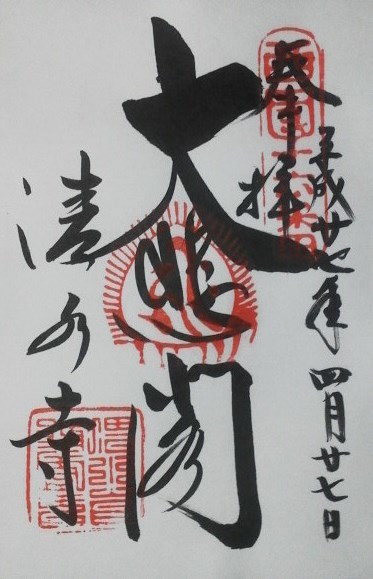 奉拝
平成廿七年四月廿七日
大悲閣
清水寺